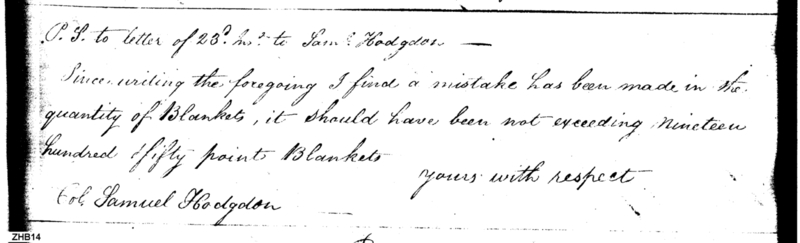 P.S. to letter of 23d. Inst. to Saml. Hodgdon —
Since writing the foregoing I find a mistake has been made in the
quantity of Blankets, it should have been not exceeding Nineteen
hundred & fifty point Blankets
yours with respect
Col. Samuel Hodgdon
ZHB14